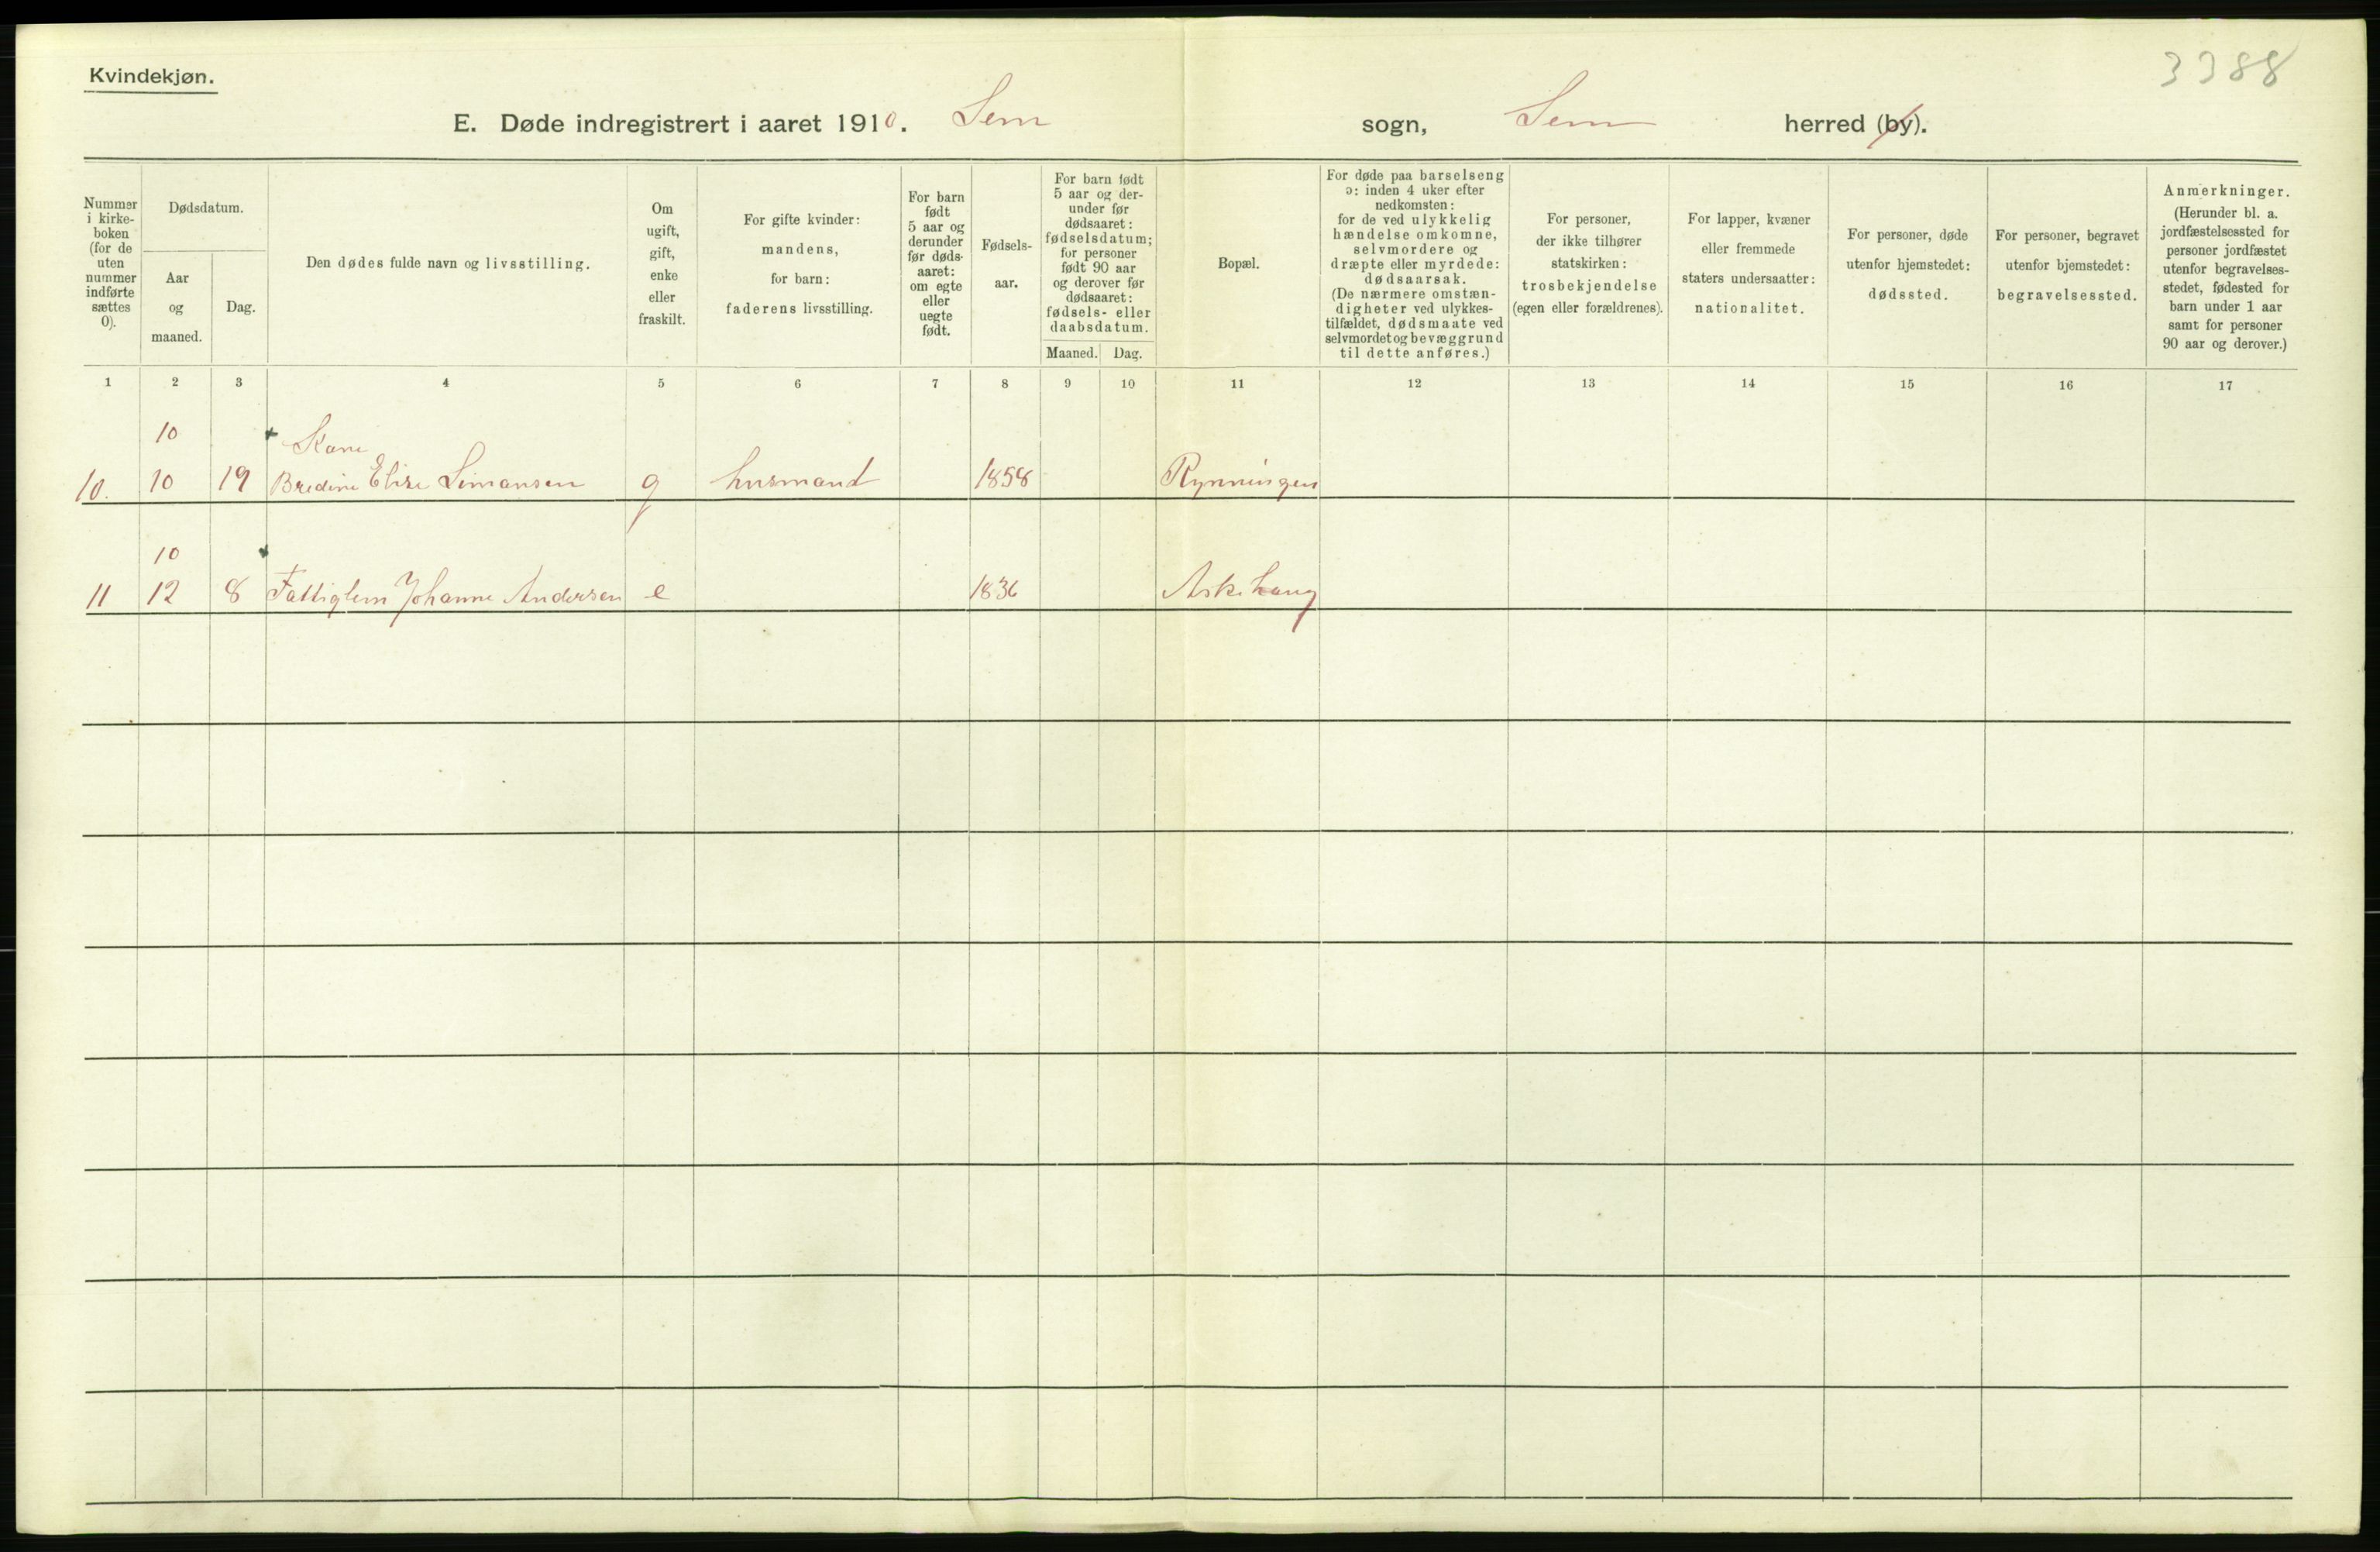 Kvindekjøn.
3388
E. Døde indregistrert i aaret 1910. Sem sogn, Sem herred (by).
Nummer
i kirke-
boken
(for de
uten
nummer
indførte
sættes
0).
Dødsdatum.
Aar
og
maaned.
Dag.
Den dødes fulde navn og livsstilling.
Om
ugift,
gift,
enke
eller
fraskilt.
For gifte kvinder:
mandens,
for barn:
faderens livsstilling.
For barn
født
5 aar og
derunder
før døds-
aaret:
om egte
eller
uegte
født.
Fødsels-
aar.
For barn født
5 aar og der-
under før
dødsaaret:
fødselsdatum;
for personer
født 90 aar
og derover før
dødsaaret:
fødsels- eller
daabsdatum.
Maaned. Dag.
Bopæl.
For døde paa barselseng
ɔ: inden 4 uker efter
nedkomsten:
for de ved ulykkelig
hændelse omkomne,
selvmordere og
dræpte eller myrdede:
dødsaarsak.
(De nærmere omstæn-
digheter ved ulykkes-
tilfældet, dødsmaate ved
selvmordet og bevæggrund
til dette anføres.)
For personer,
der ikke tilhører
statskirken:
trosbekjendelse
(egen eller forældrenes).
For lapper, kvæner
eller fremmede
staters undersaatter:
nationalitet.
For personer, døde
utenfor hjemstedet:
dødssted.
For personer, begravet
utenfor bjemstedet:
begravelsessted.
Anmerkninger.
(Herunder bl. a.
jordfæstelsessted for
personer jordfæstet
utenfor begravelses-
stedet, fødested for
barn under 1 aar
samt for personer
90 aar og derover.)
1 2 3 4 5 6 7 8 9 10 11 12 13 14 15 16 17
10 Kone
10. 10 19 Bredine Elise Simansen g husmand 1858 Rynningen
10
11 12 8 Fattiglem Johanne Andersen e 1836 Askehaug